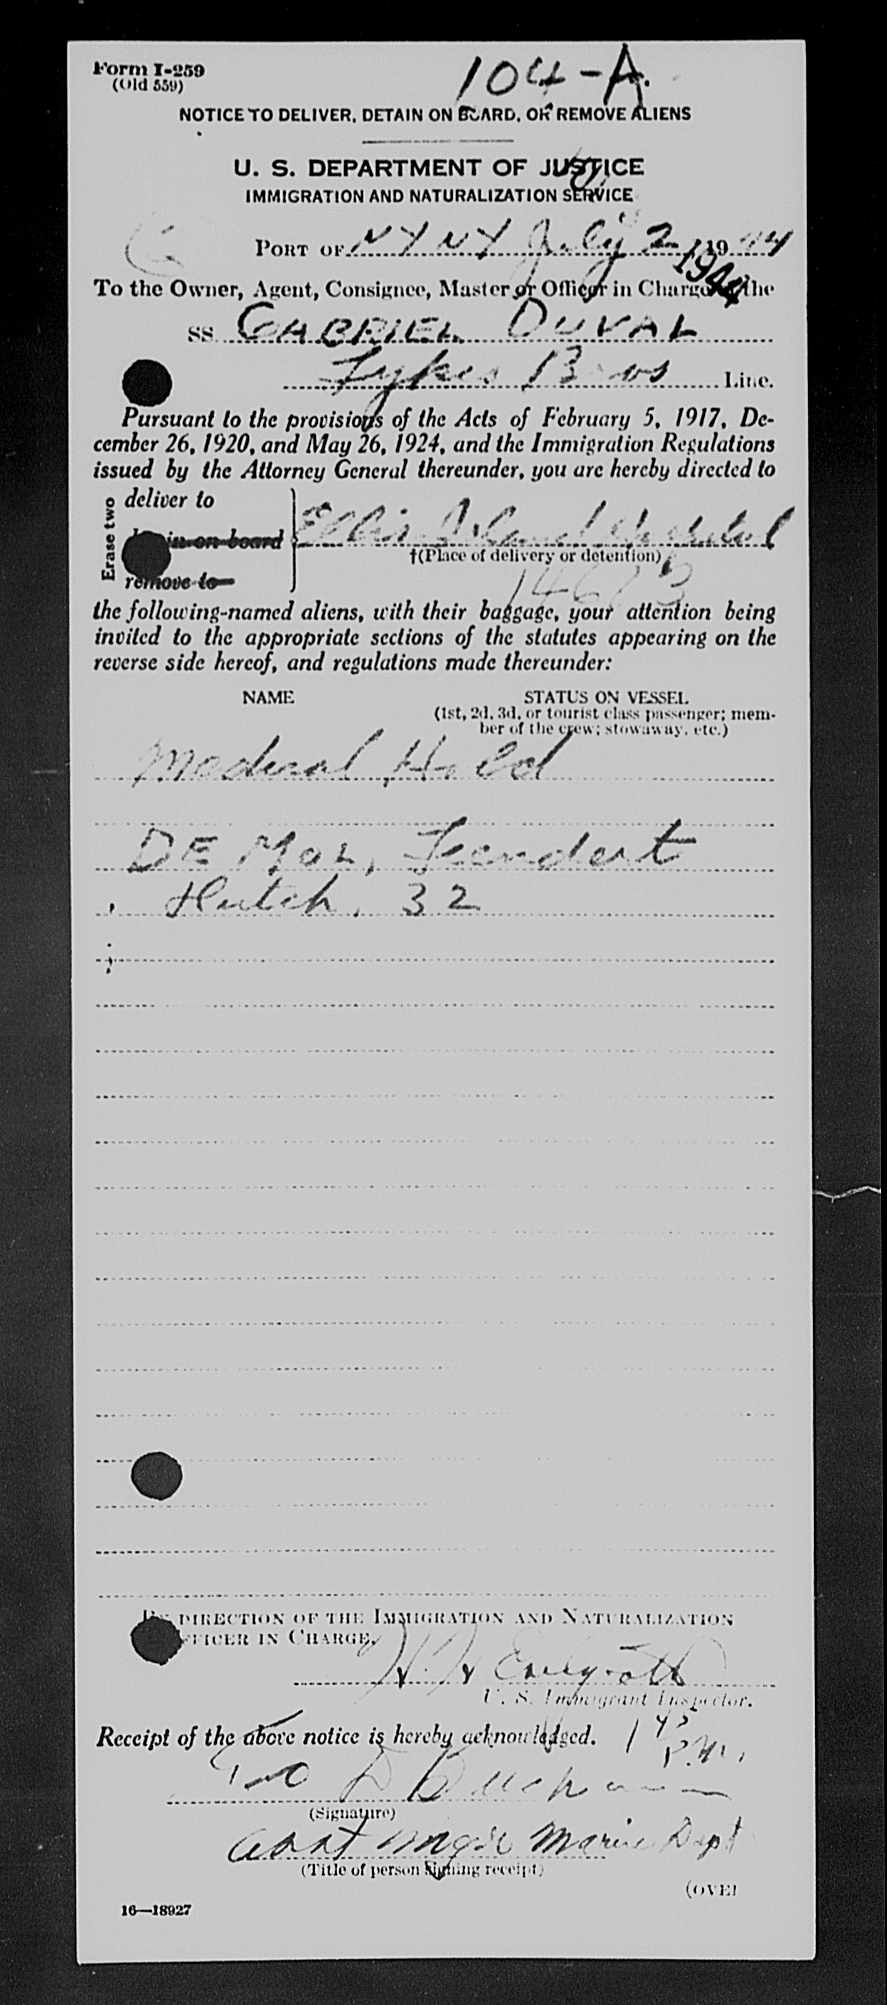 Form I-259
(Old 559)
104-A.
NOTICE TO DELIVER, DETAIN ON BOARD, OR REMOVE ALIENS
U. S. DEPARTMENT OF JUSTICE
IMMIGRATION AND NATURALIZATION SERVICE
PORT OF NY NY July 2, 1944
1944
To the Owner, Agent, Consignee, Master or Officer in Charge the
SS. GABRIEL DUVAL
Lykes Bros Line.
Pursuant to the provisions of the Acts of February 5, 1917, De-
cember 26, 1920, and May 26, 1924, and the Immigration Regulations
issued by the Attorney General thereunder, you are hereby directed to
Erase two
deliver to
in on board Ellis Island Hospital
†(Place of delivery or detention)
remove to
the following-named aliens, with their baggage, your attention being
invited to the appropriate sections of the statutes appearing on the
reverse side hereof, and regulations made thereunder:
NAME STATUS ON VESSEL
(1st, 2d, 3d, or tourist class passenger; mem-
ber of the crew; stowaway, etc.)
Medical Hold
DE MOL, Leendert
Dutch, 32
BY DIRECTION OF THE IMMIGRATION AND NATURALIZATION
OFFICER IN CHARGE.
H. H
U. S. Immigrant Inspector.
Receipt of the above notice is hereby acknowledged. 1 45
P.M.
(Signature)
Asst Mgr Marine Dept
(Title of person signing receipt)
(OVER
16—18927